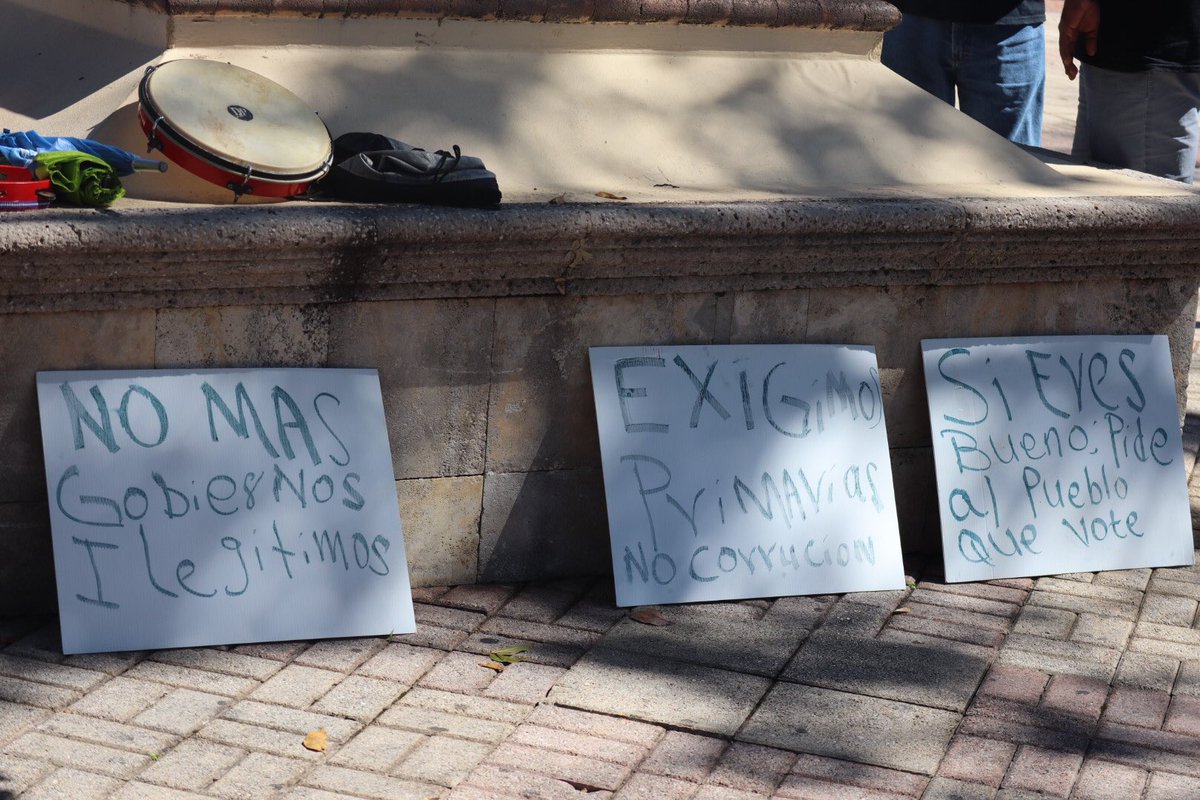 NO MAS
Gobiernos
Ilegitimos
EXIGiMOS
PriMAVias
No corrucion
Si EVES
Bueno; Pide
al Pueblo
Que vote